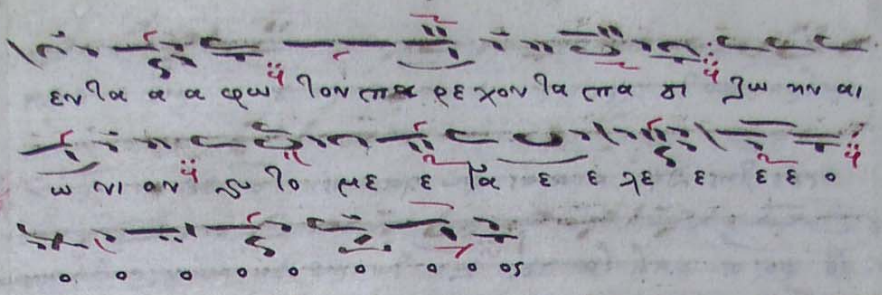 εν τα α α φω τον πα ρε χον τα πα σι ζω ην αι
ω νι ον το με ε γα ε ε λε ε ε ε ο
ο ο ο ο ο ο ο ο ος